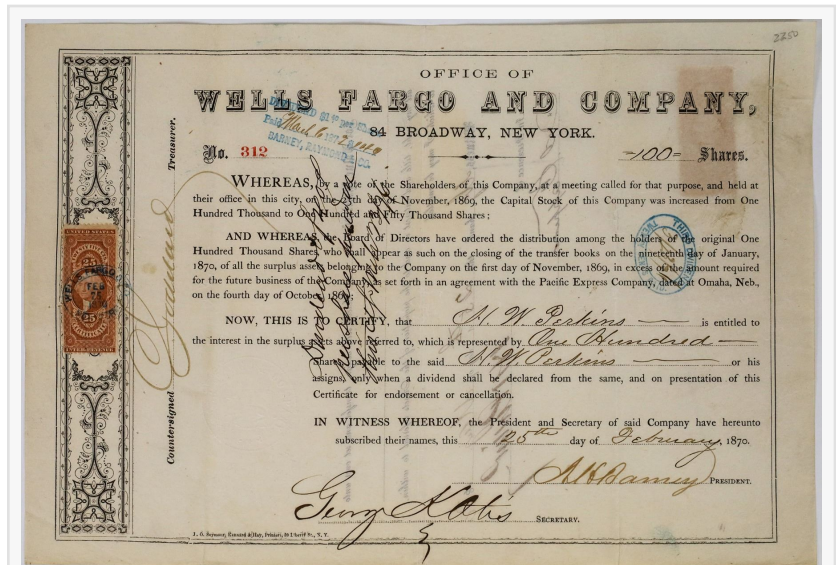 2250
OFFICE OF
WELLS FARGO AND COMPANY,
84 BROADWAY, NEW YORK.
BARNEY, RAYMOND & CO.
No. 312
-100- Shares.
WHEREAS, by a vote of the Shareholders of this Company, at a meeting called for that purpose, and held at
their office in this city, on the 27th day of November, 1869, the Capital Stock of this Company was increased from One
Hundred Thousand to One Hundred and Fifty Thousand Shares;
AND WHEREAS, the Board of Directors have ordered the distribution among the holders of the original One
Hundred Thousand Shares, who shall appear as such on the closing of the transfer books on the nineteenth day of January,
1870, of all the surplus assets belonging to the Company on the first day of November, 1869, in excess of the amount required
for the future business of the Company, as set forth in an agreement with the Pacific Express Company, dated at Omaha, Neb.,
on the fourth day of October, 1869;
NOW, THIS IS TO CERTIFY, that H. W. Perkins is entitled to
the interest in the surplus assets above referred to, which is represented by One Hundred
Shares, payable to the said H. W. Perkins or his
assigns, only when a dividend shall be declared from the same, and on presentation of this
Certificate for endorsement or cancellation.
IN WITNESS WHEREOF, the President and Secretary of said Company have hereunto
subscribed their names, this 25th day of February, 1870.
A H Barney PRESIDENT.
George K Otis SECRETARY.
Countersigned
Treasurer.
UNITED STATES
25
CERTIFICATE